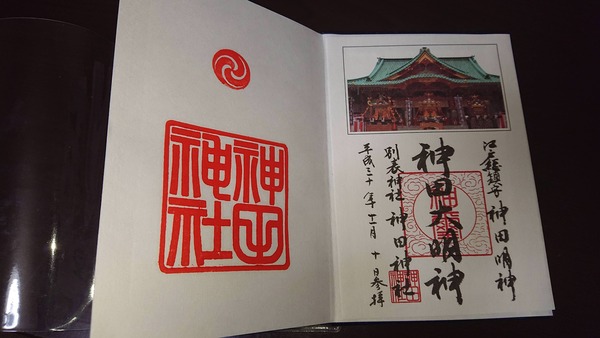 江戸総鎮守 神田明神
神田大明神
別表神社 神田神社
平成三十年十一月十日参拝
神田
神社